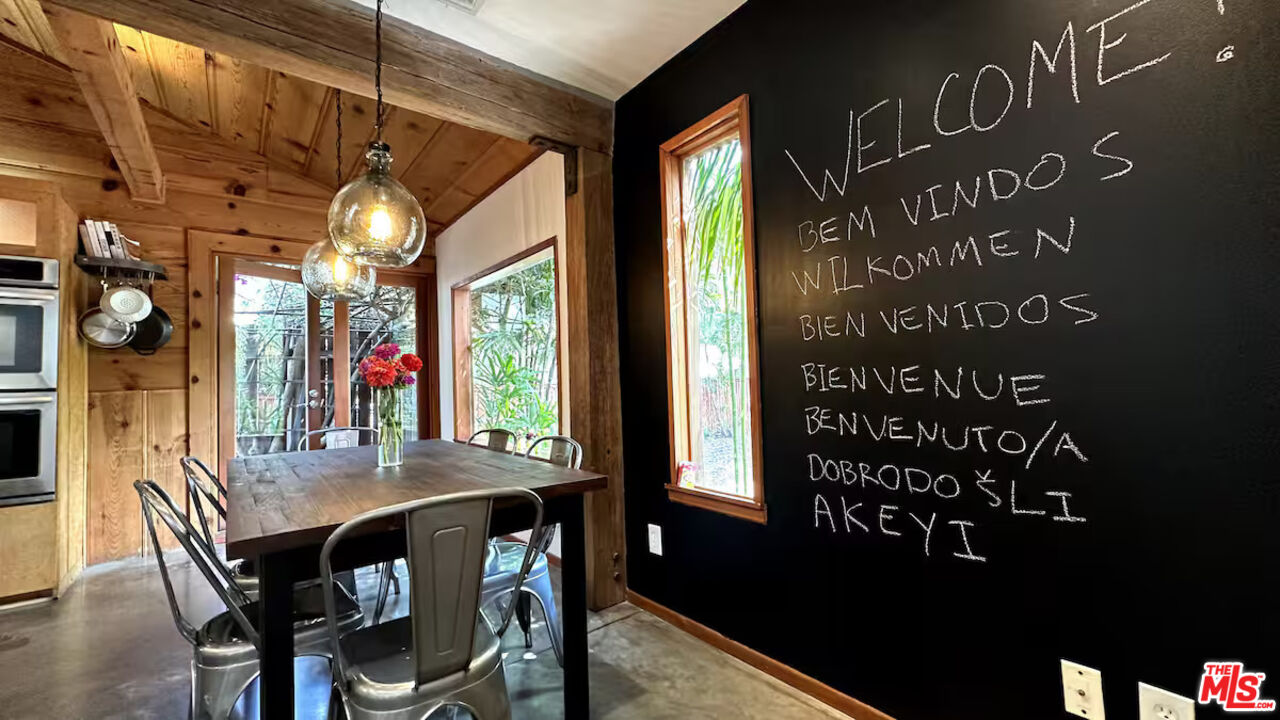 WELCOME!
BEM VINDOS
WILKOMMEN
BIENVENIDOS
BIENVENUE
BENVENUTO/A
DOBRODOŠLI
AKEYI
THE
MLS
.com